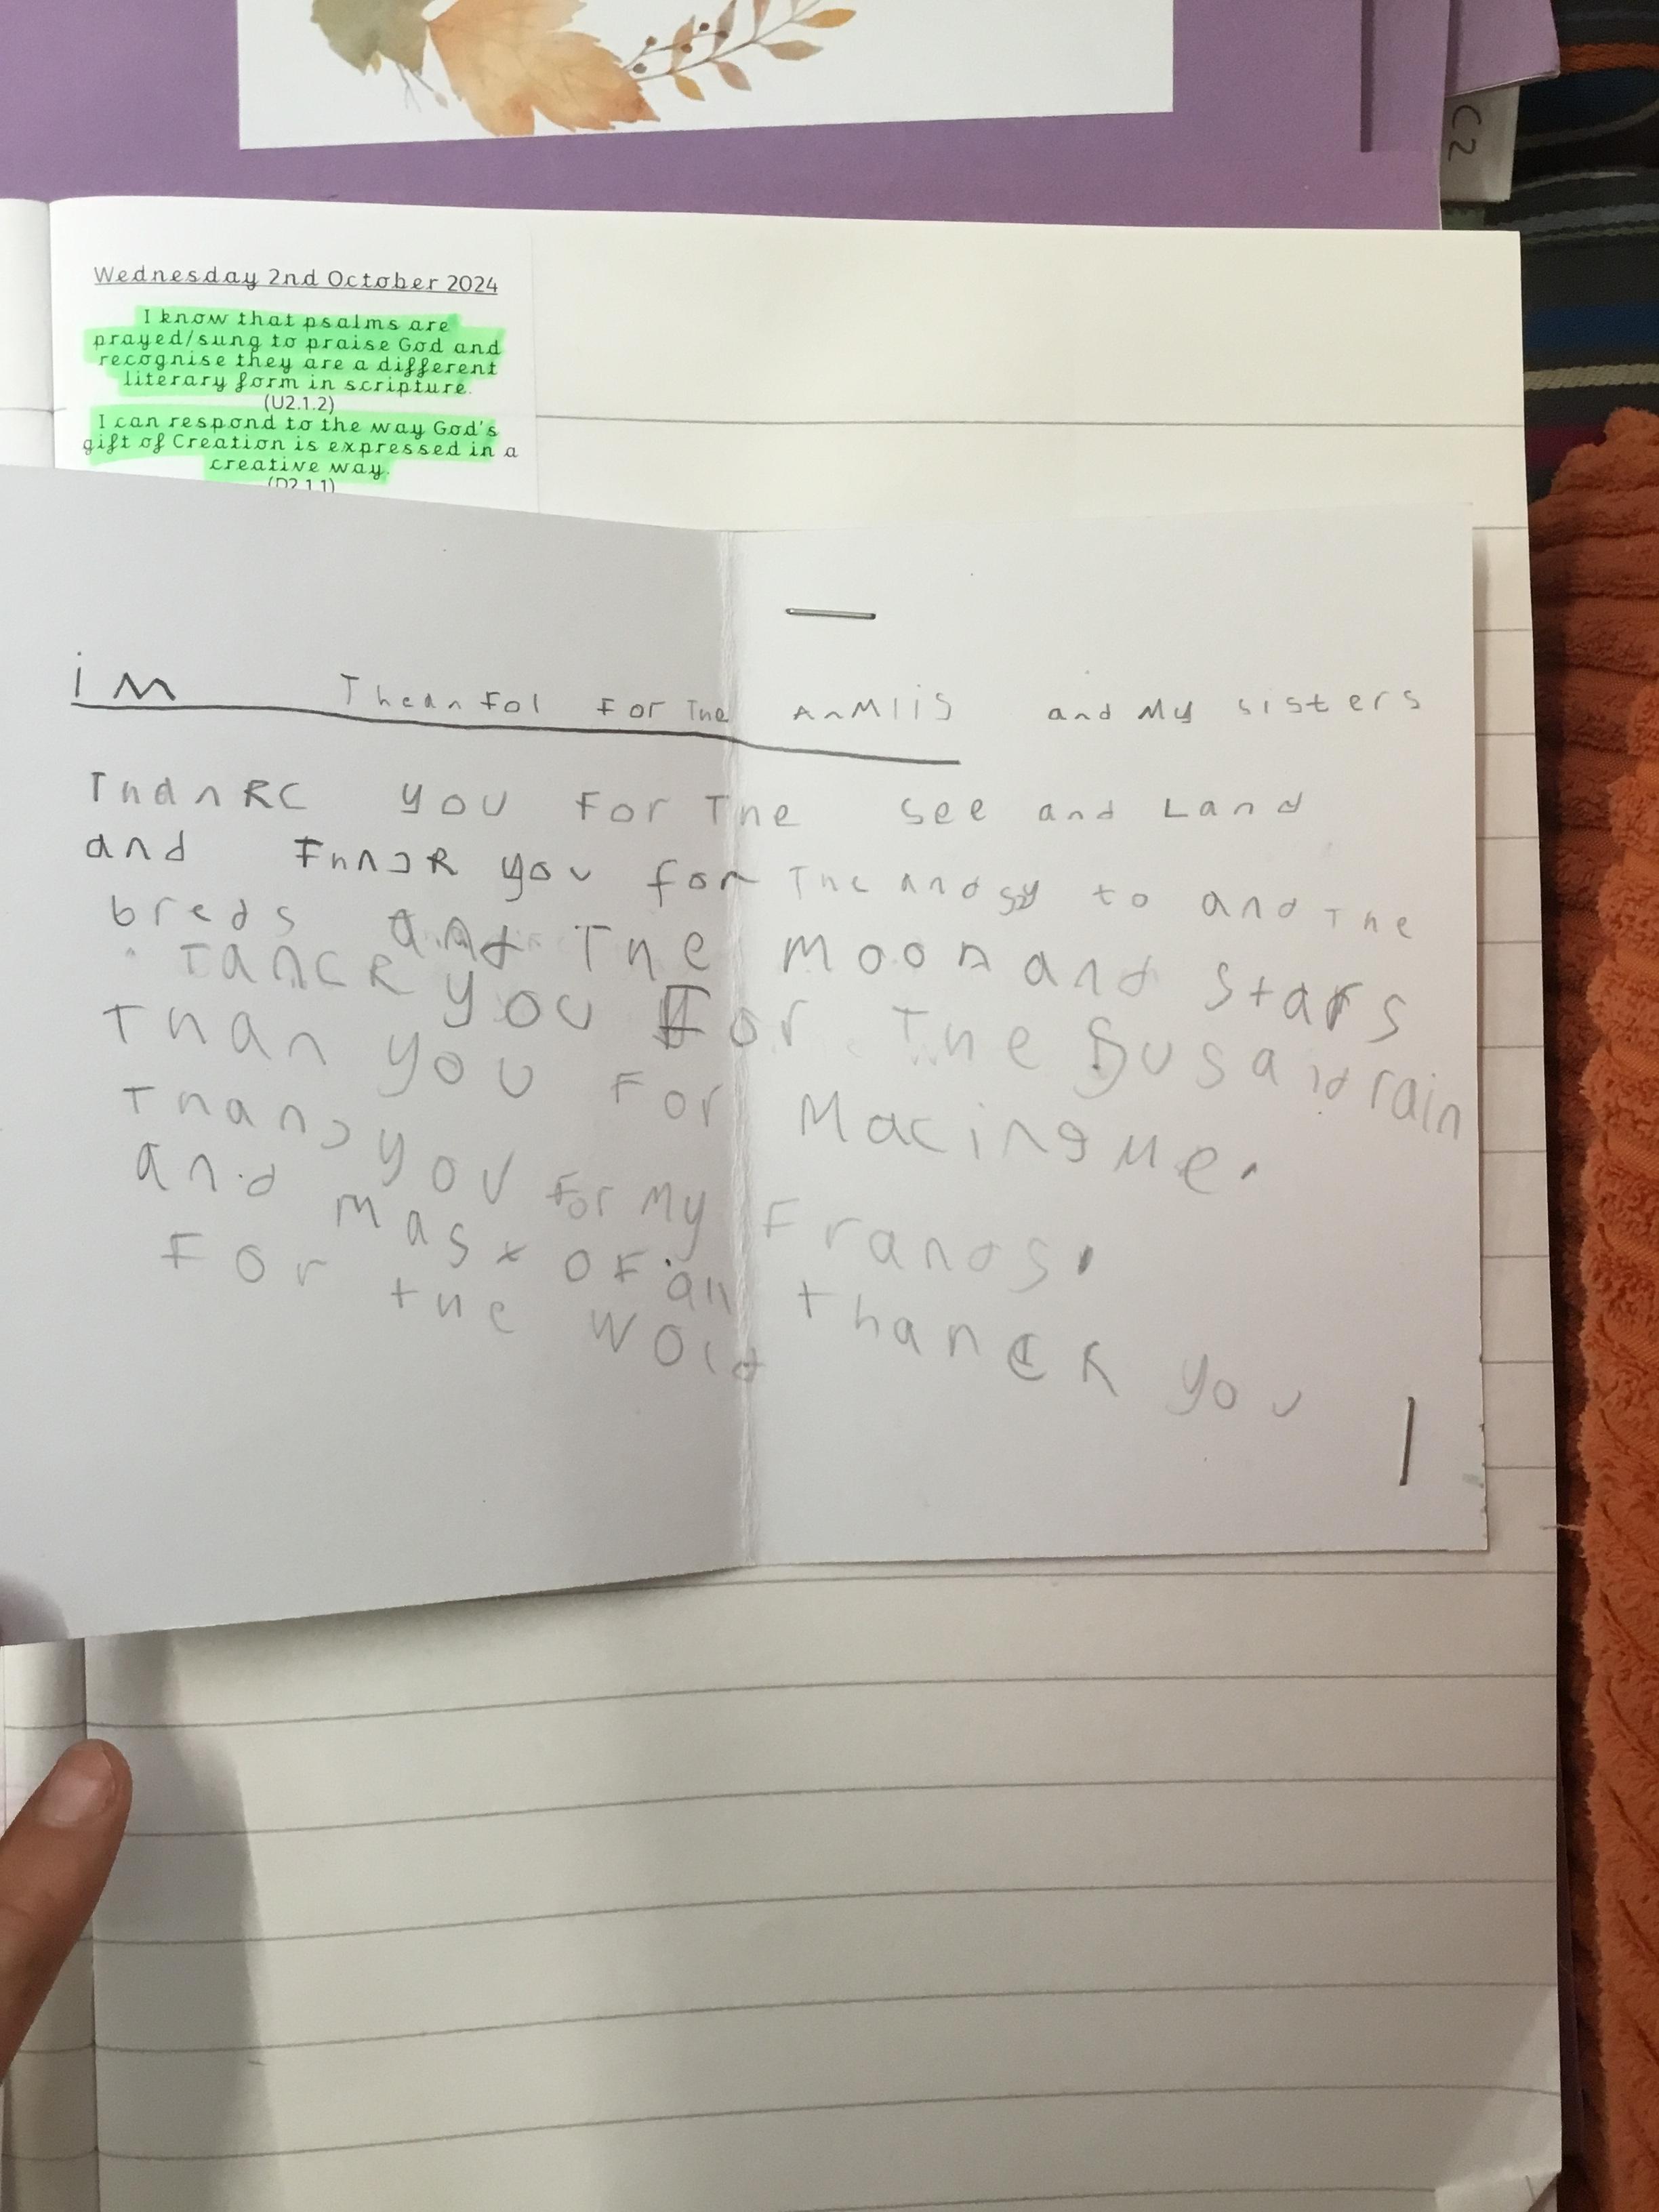 C2
Wednesday 2nd October 2024
I know that psalms are
prayed/sung to praise God and
recognise they are a different
literary form in scripture.
(U2.1.2)
I can respond to the way God's
gift of Creation is expressed in a
creative way.
(D2.1.1)
im Theanfol For The AnMlis and My sisters
ThanRC you For The see and Land
and you for The to and The
breds and The moon and stars
TancR you For The rain
Than you For Macing me.
you For My Frands.
and mast of all thancK you
For the Wold